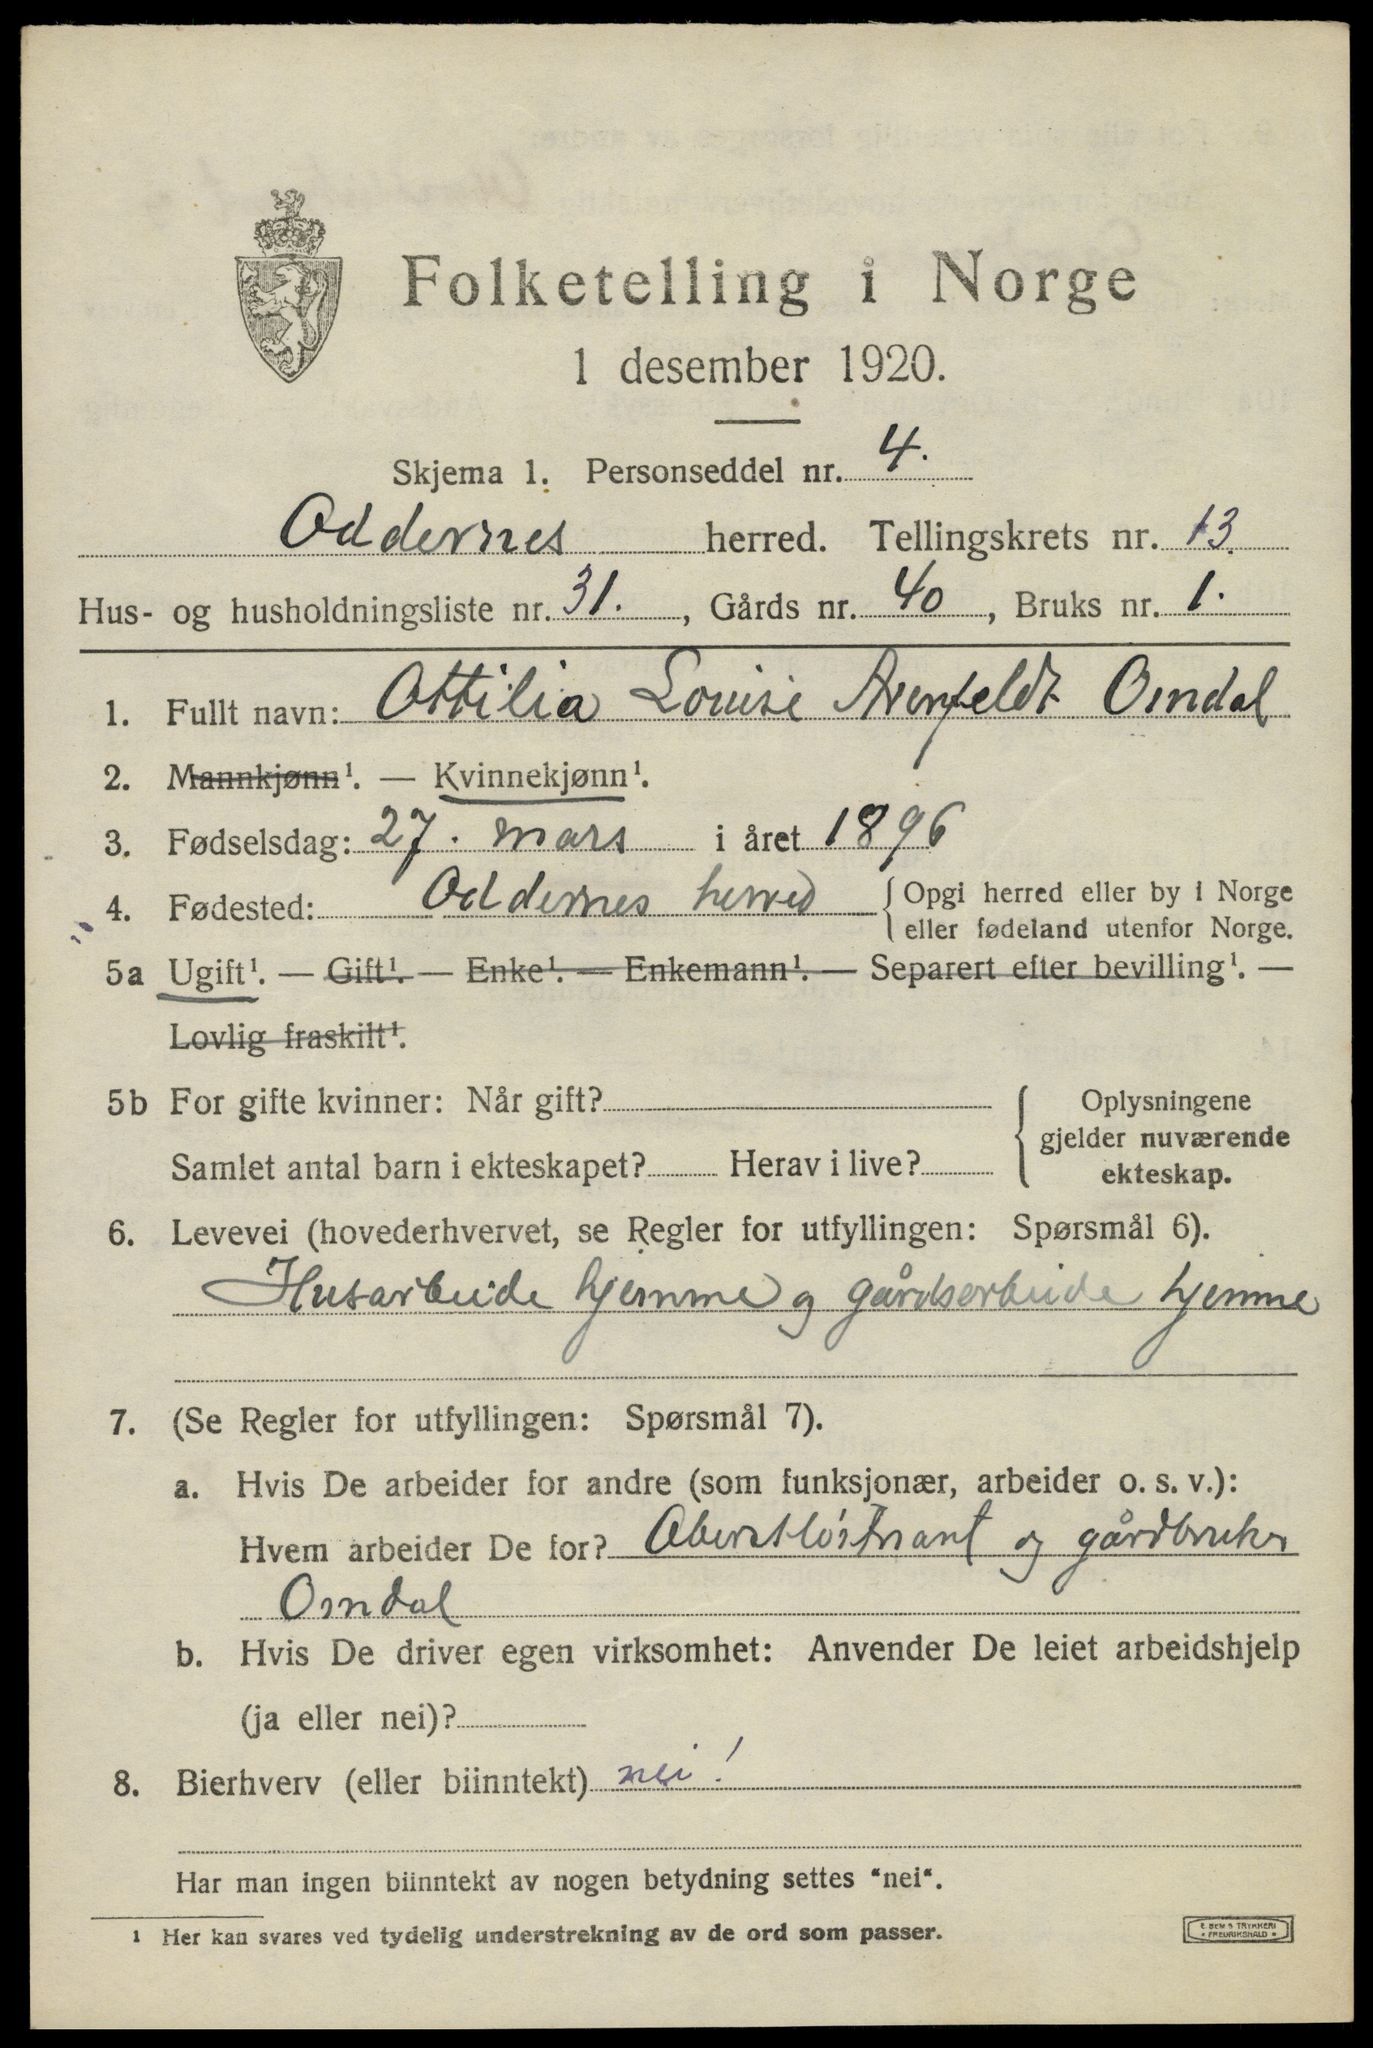 Folketelling i Norge
1 desember 1920.
Skjema 1. Personseddel nr. 4.
Oddernes herred. Tellingskrets nr. 13.
Hus- og husholdningsliste nr. 31. , Gårds nr. 40 , Bruks nr. 1.
1. Fullt navn: Ottilia Louise Arenfeldt Omdal
2. Mannkjønn¹. — Kvinnekjønn¹.
3. Fødselsdag: 27. mars i året 1896
4. Fødested: Oddernes herred { Opgi herred eller by i Norge
eller fødeland utenfor Norge.
5a Ugift¹. — Gift¹. — Enke¹. — Enkemann¹. — Separert efter bevilling¹. —
Lovlig fraskilt¹.
5b For gifte kvinner: Når gift? { Oplysningene
gjelder nuværende
Samlet antal barn i ekteskapet? Herav i live? ekteskap.
6. Levevei (hovederhvervet, se Regler for utfyllingen: Spørsmål 6).
Husarbeide hjemme og gårdsarbeide hjemme
7. (Se Regler for utfyllingen: Spørsmål 7).
a. Hvis De arbeider for andre (som funksjonær, arbeider o. s. v.):
Hvem arbeider De for? Oberstløitnant og gårdbruker
Omdal
b. Hvis De driver egen virksomhet: Anvender De leiet arbeidshjelp
(ja eller nei)?
8. Bierhverv (eller biinntekt) nei!
Har man ingen biinntekt av nogen betydning settes "nei".
1 Her kan svares ved tydelig understrekning av de ord som passer.
E. SEM'S TRYKKERI
• FREDRIKSHALD •